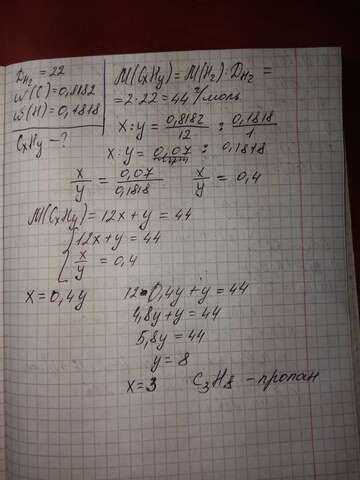 D_H₂ = 22
ω(C) = 0,8182
ω(H) = 0,1818
CxHy - ?
M(CxHy) = M(H₂) · D_H₂ =
= 2 · 22 = 44 г/моль
x : y = 0,8182/12 : 0,1818/1
x : y = 0,07 : 0,1818
x/y = 0,07/0,1818    x/y = 0,4
M(CxHy) = 12x + y = 44
{ 12x + y = 44
x/y = 0,4
x = 0,4y    12 · 0,4y + y = 44
4,8y + y = 44
5,8y = 44
y = 8
x = 3    C₃H₈ - пропан